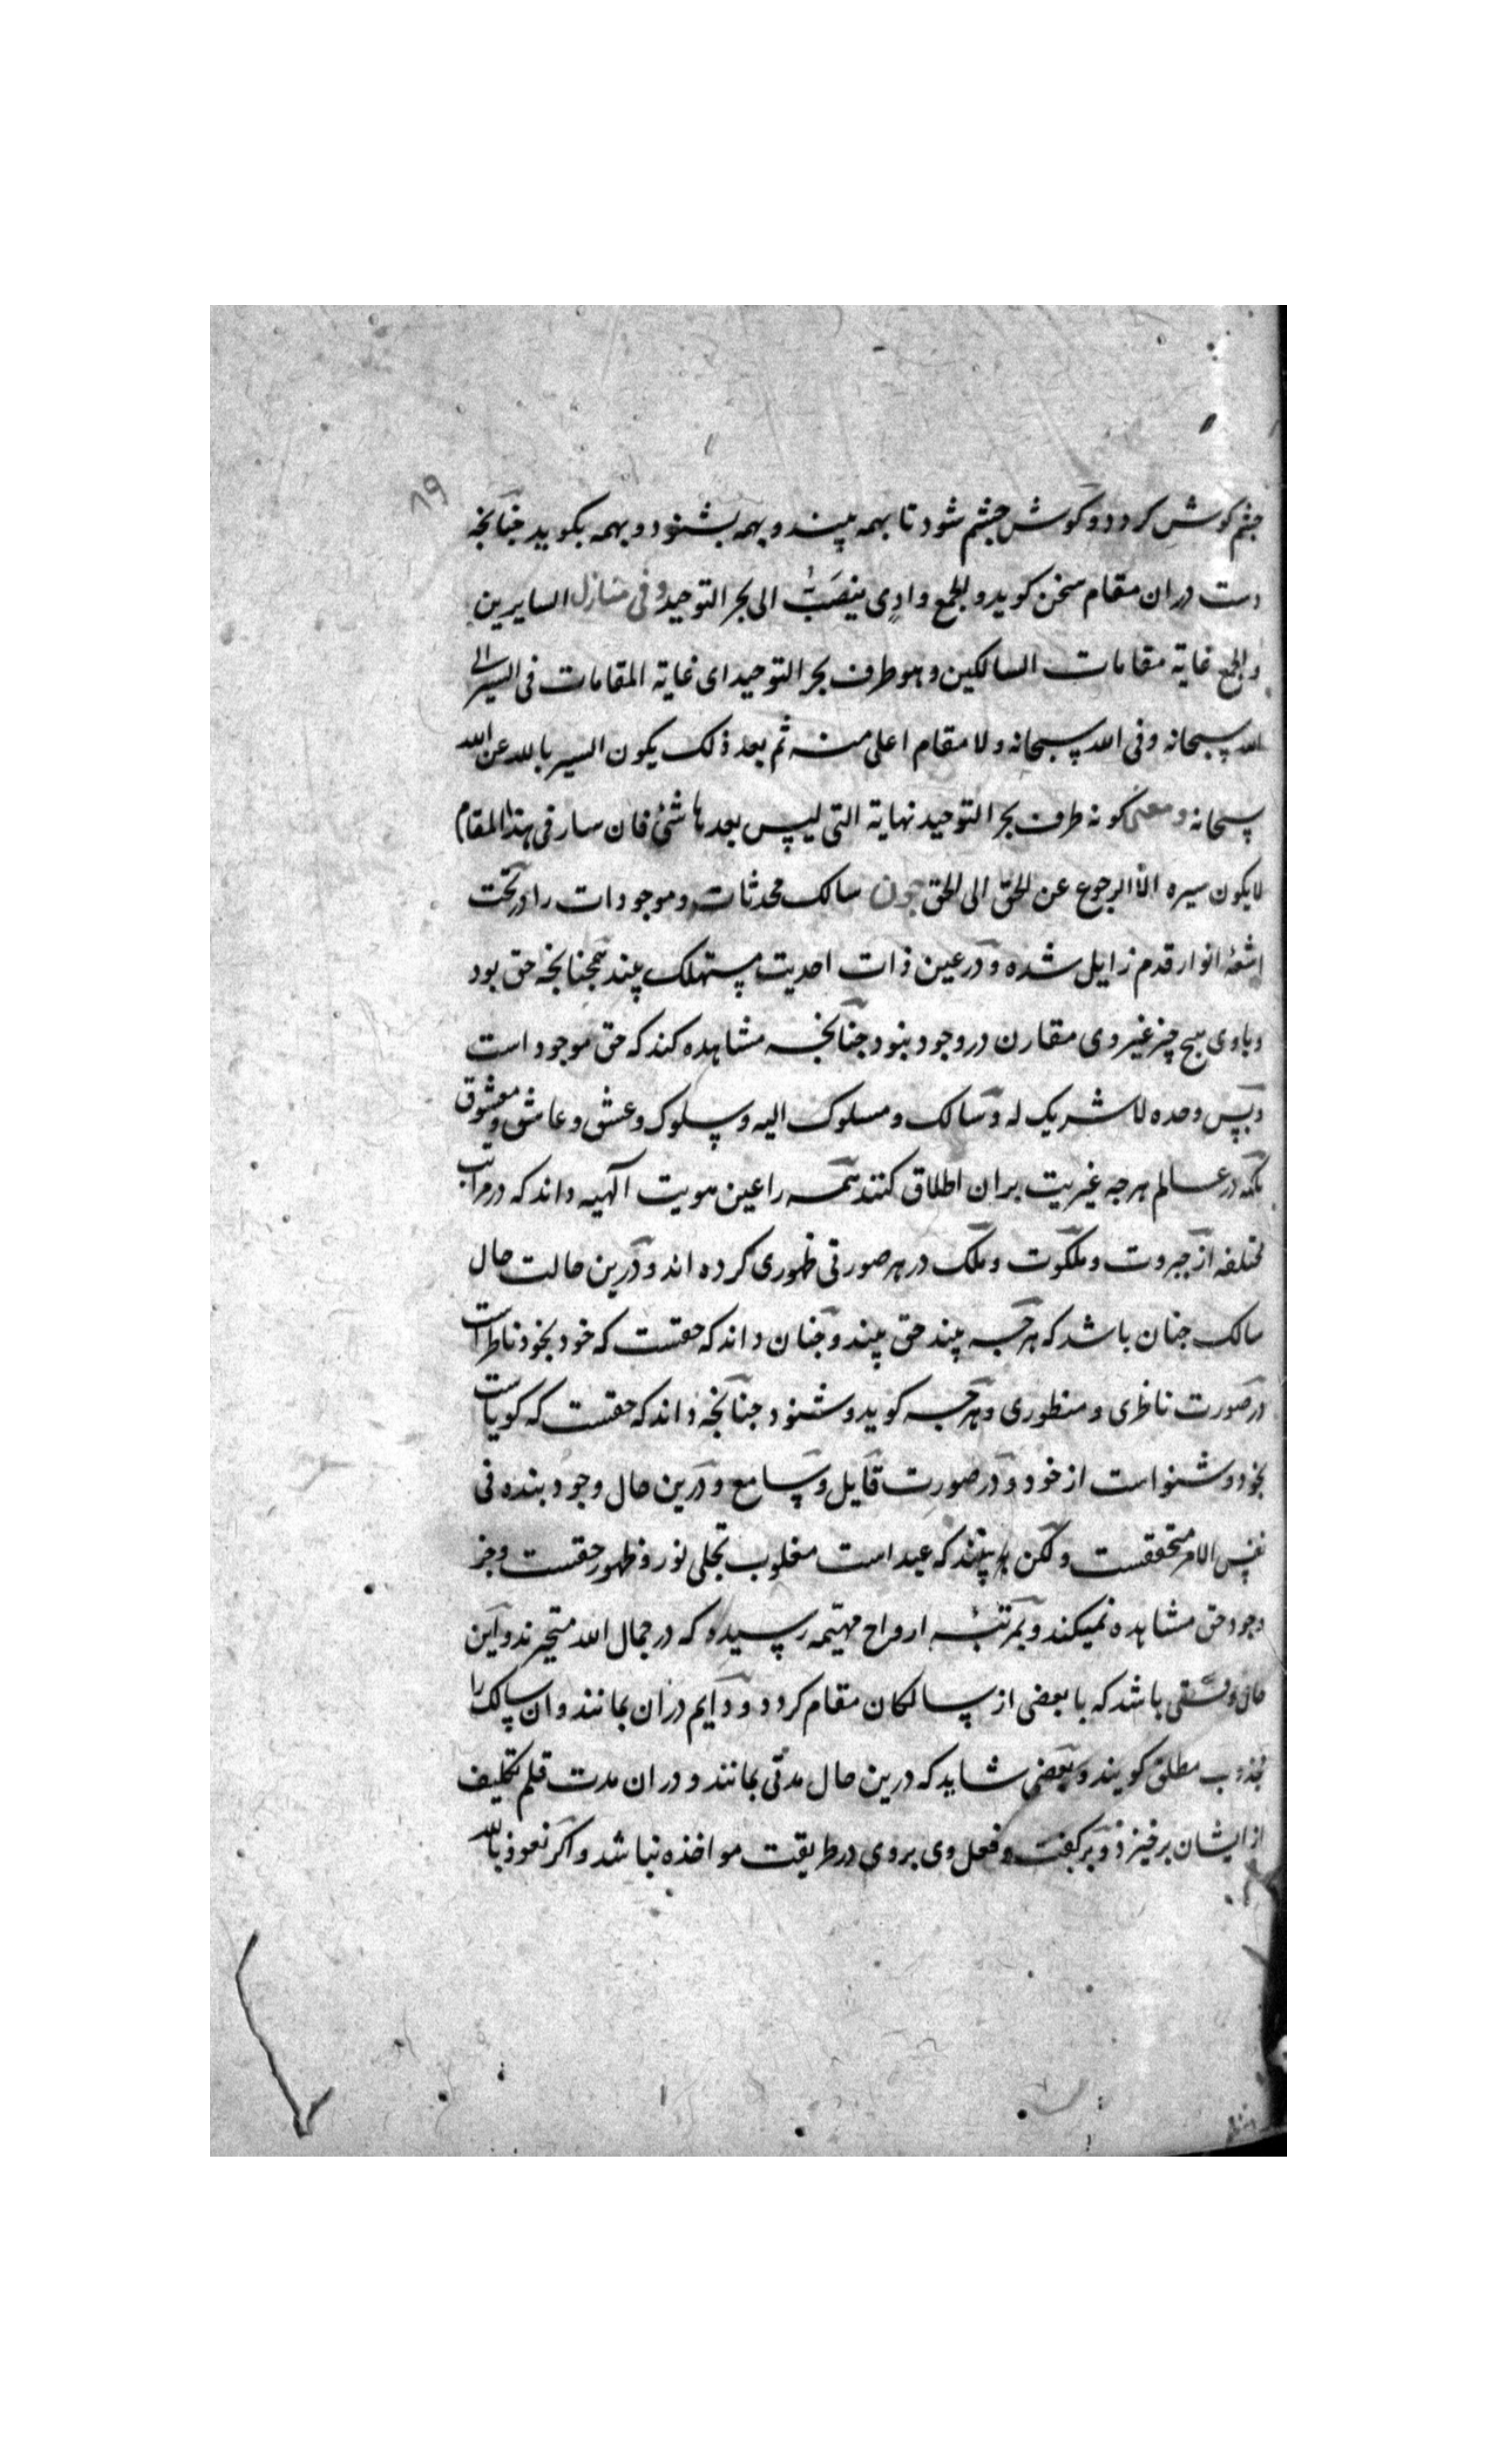 ۸۹
چشم کوش کردد و کوش چشم شود تا بهمه بیند و بهمه بشنود و بهمه بکوید چنانچه
دست دران مقام سخن کوید و الجمع وادی ینصَبّ الی بحر التوحید و فی منازل السایرین
و الجمع غایة مقامات السالکین و هو طرف بحر التوحید ای غایة المقامات فی السیر الی
الله سبحانه و فی الله سبحانه و لا مقام اعلی منه ثم بعد ذلک یکون السیر بالله عن الله
سبحانه و معنی کونه طرف بحر التوحید نهایة التی لیس بعدها شیٔ فان سار فی هذا المقام
لا یکون سیره الا الرجوع عن الحق الی الحق چون سالک محدثات و موجودات را در تحت
اشعهٔ انوار قدم زایل شده و در عین ذات احدیت مستهلک بیند همچنانچه حق بود
و با وی هیچ چیز غیر وی مقارن در وجود نبود چنانچه مشاهده کند که حق موجود است
و بس وحده لا شریک له و سالک و مسلوک الیه و سلوک و عشق و عاشق و معشوق
بلکه در عالم هرچه غیریت بران اطلاق کنند همه را عین هویت آلهیه داند که در مراتب
مختلفه از جبروت و ملکوت و ملک در هر صورتی ظهوری کرده اند و درین حالت حال
سالک چنان باشد که هرچه بیند حق بیند و چنان داند که حقست که خود بخود ناظر است
در صورت ناظری و منظوری و هرچه کوید و شنود چنانچه داند که حقست که کویاست
بخود و شنواست از خود و در صورت قایل و سامع و درین حال وجود بنده فی
نفس الامر متحققست و لکن بیند که عبد است مغلوب تجلی نور و ظهور حقست و جز
وجود حق مشاهده نمیکند و بمرتبهٔ ارواح مهیّمه رسیده که در جمال الله متحیرند و این
حال وقتی باشد که با بعضی از سالکان مقام کردد و دایم دران بمانند و ان سالک را
مجذوب مطلق کویند و بعضی شاید که درین حال مدتی بمانند و دران مدت قلم تکلیف
از ایشان برخیزد و بر کفت و فعل وی بروی در طریقت مواخذه نباشد و اکر نعوذ بالله